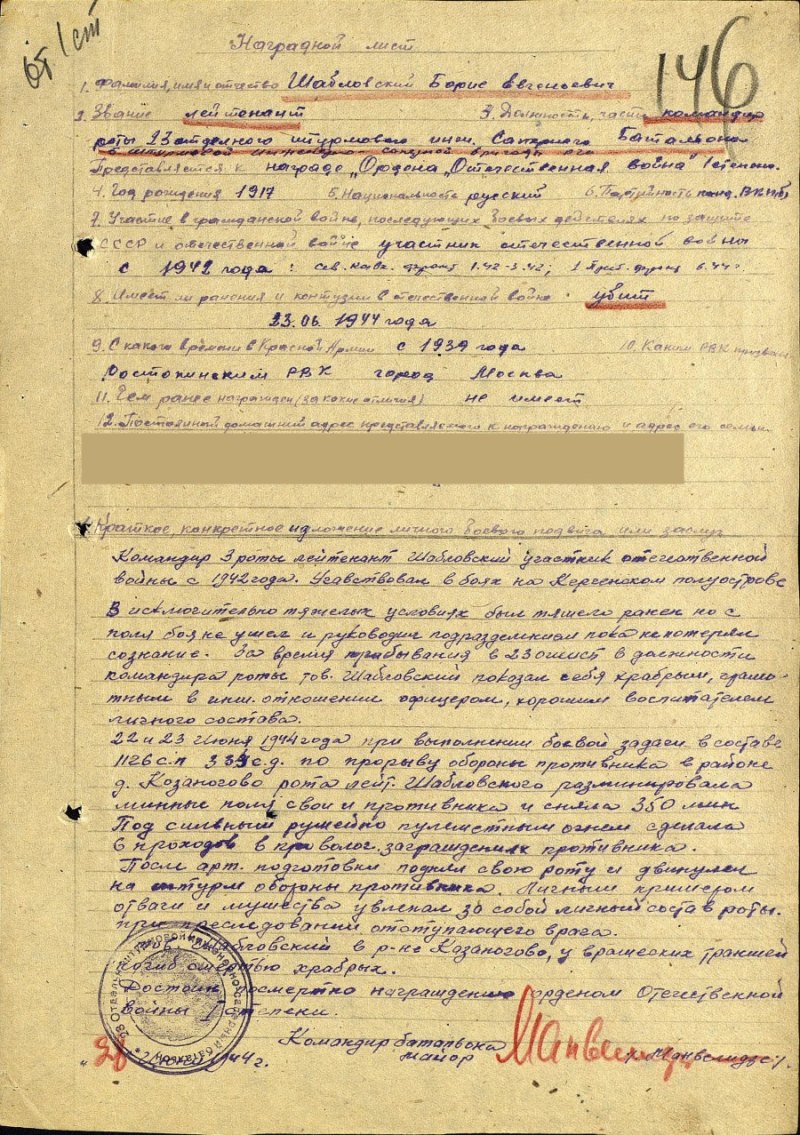 от 1 ст
146
Наградной лист
1. Фамилия, имя и отчество Шабловский Борис Евгеньевич
2. Звание лейтенант 3. Должность, часть командир
роты 23 отдельного штурмового инж. Саперного Батальона
Представляется к награде "Ордена "Отечественная война" I степени.
4. Год рождения 1917 5. Национальность русский 6. Партийность канд. ВКП(б)
7. Участие в гражданской войне, последующих боевых действиях по защите
СССР и отечественной войне участник отечественной войны
с 1942 года: сев. Кавк. фронт 1.42-5.42; 1 Приб. фронт 6.44г.
8. Имеет ли ранения и контузии в отечественной войне. убит
23.06.1944 года
9. С какого времени в Красной Армии с 1939 года 10. Каким РВК призван
Ростокинским РВК город Москва
11. Чем ранее награжден (за какие отличия) не имеет
12. Постоянный домашний адрес представляемого к награждению и адрес его семьи
Краткое, конкретное изложение личного боевого подвига или заслуг
Командир 3 роты лейтенант Шабловский участник отечественной
войны с 1942 года. Учавствовал в боях на Керченском полуострове
В исключительно тяжелых условиях был тяжело ранен но с
поля боя не ушел и руководил подразделением пока не потерял
сознание. За время прибывания в 23 ошисб в должности
командира роты тов. Шабловский показал себя храбрым, грамо-
тным в инж. отношении офицером, хорошим воспитателем
личного состава.
22 и 23 Июня 1944 года при выполнении боевой задачи в составе
1126 с.п 334 с.д. по прорыву обороны противника в районе
д. Козаногово рота лейт. Шабловского разминировала
минные поля свои и противника и сняла 350 мин
Под сильным ружейно пулеметным огнем сделала
8 проходов в проволоч. заграждениях противника.
После арт. подготовки поднял свою роту и двинулся
на штурм обороны противника. Личным примером
отваги и мужества увлекал за собой личный состав роты.
при преследовании отступающего врага.
Шабловский в р-не Козаногово, у вражеских траншей
погиб смертью храбрых.
Достоин посмертно награждению орденом Отечественной
войны I степени.
Командир батальона
майор
"28" 1944 г.